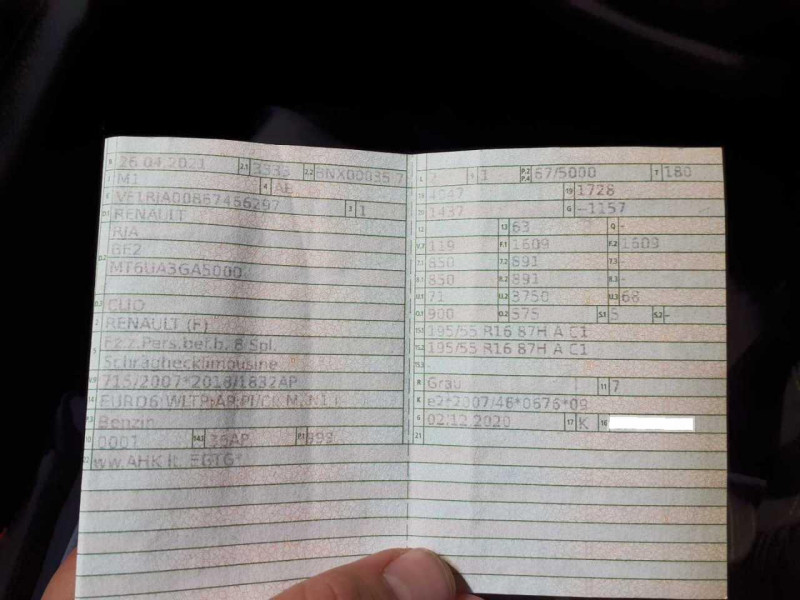 B 26.04.2021 2.1 3333 2.2 BNX00035 7
J M1 4 AB
E VF1RJA00867456297 3 1
D.1 RENAULT
RJA
D.2 BF2
MT6UA3GA5000
D.3 CLIO
2 RENAULT (F)
5 Fz.z.Pers.bef.b. 8 Spl.
Schräghecklimousine
V.9 715/2007*2018/1832AP
14 EURO6 WLTP;AP;PI/CI; M, N1 I
P.3 Benzin
10 0001 14.1 36AP P.1 999
22 ww.AHK lt. EGTG*
L 2 9 1 P.2 P.4 67/5000 T 180
18 4047 19 1728
20 1437 G -1157
12 13 63 Q -
V.7 119 F.1 1609 F.2 1609
7.1 850 7.2 891 7.3
8.1 850 8.2 891 8.3 -
U.1 71 U.2 3750 U.3 68
O.1 900 O.2 575 S.1 5 S.2 -
15.1 195/55 R16 87H A C1
15.2 195/55 R16 87H A C1
15.3
R Grau 11 7
K e2*2007/46*0676*09
6 02.12.2020 17 K 16
21